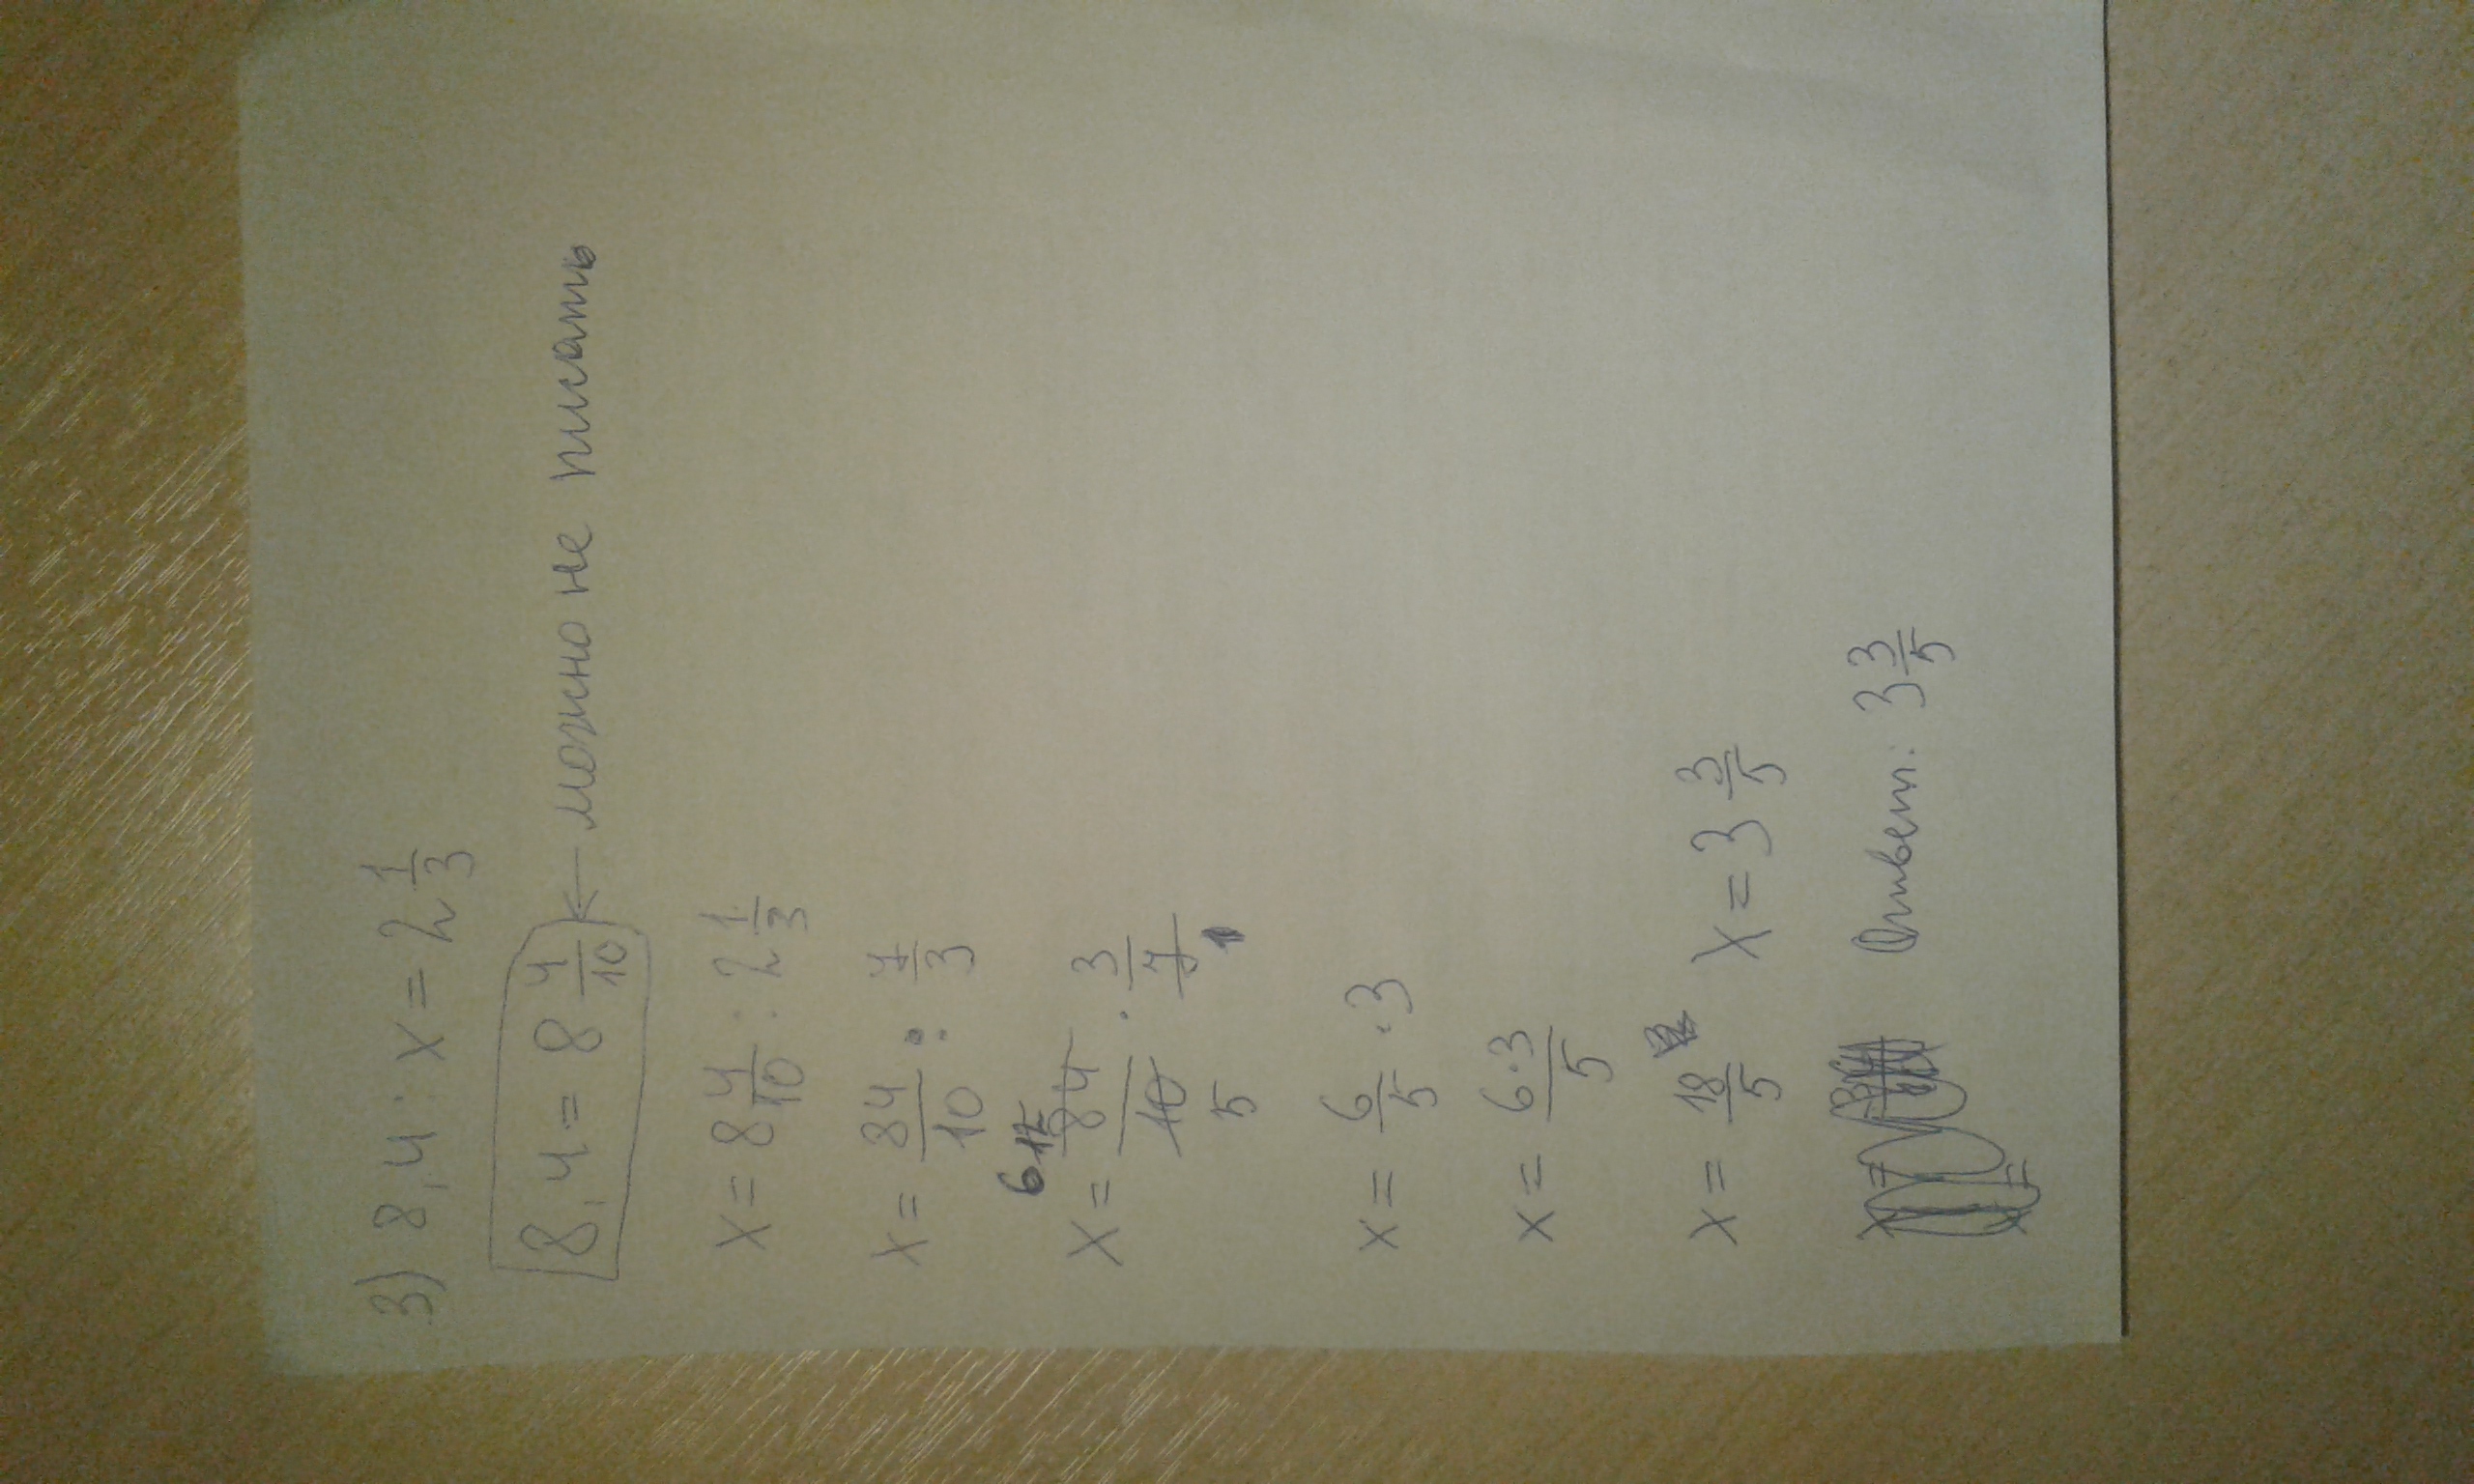 3) 8,4 : x = 2 1/3
8,4 = 8 4/10 ← можно не писать
x = 8 4/10 : 2 1/3
x = 84/10 : 7/3
6 12
x = 84/10 · 3/7
5 1
x = 6/5 · 3
x = 6·3/5
x = 18/5 x = 3 3/5
Ответ: 3 3/5